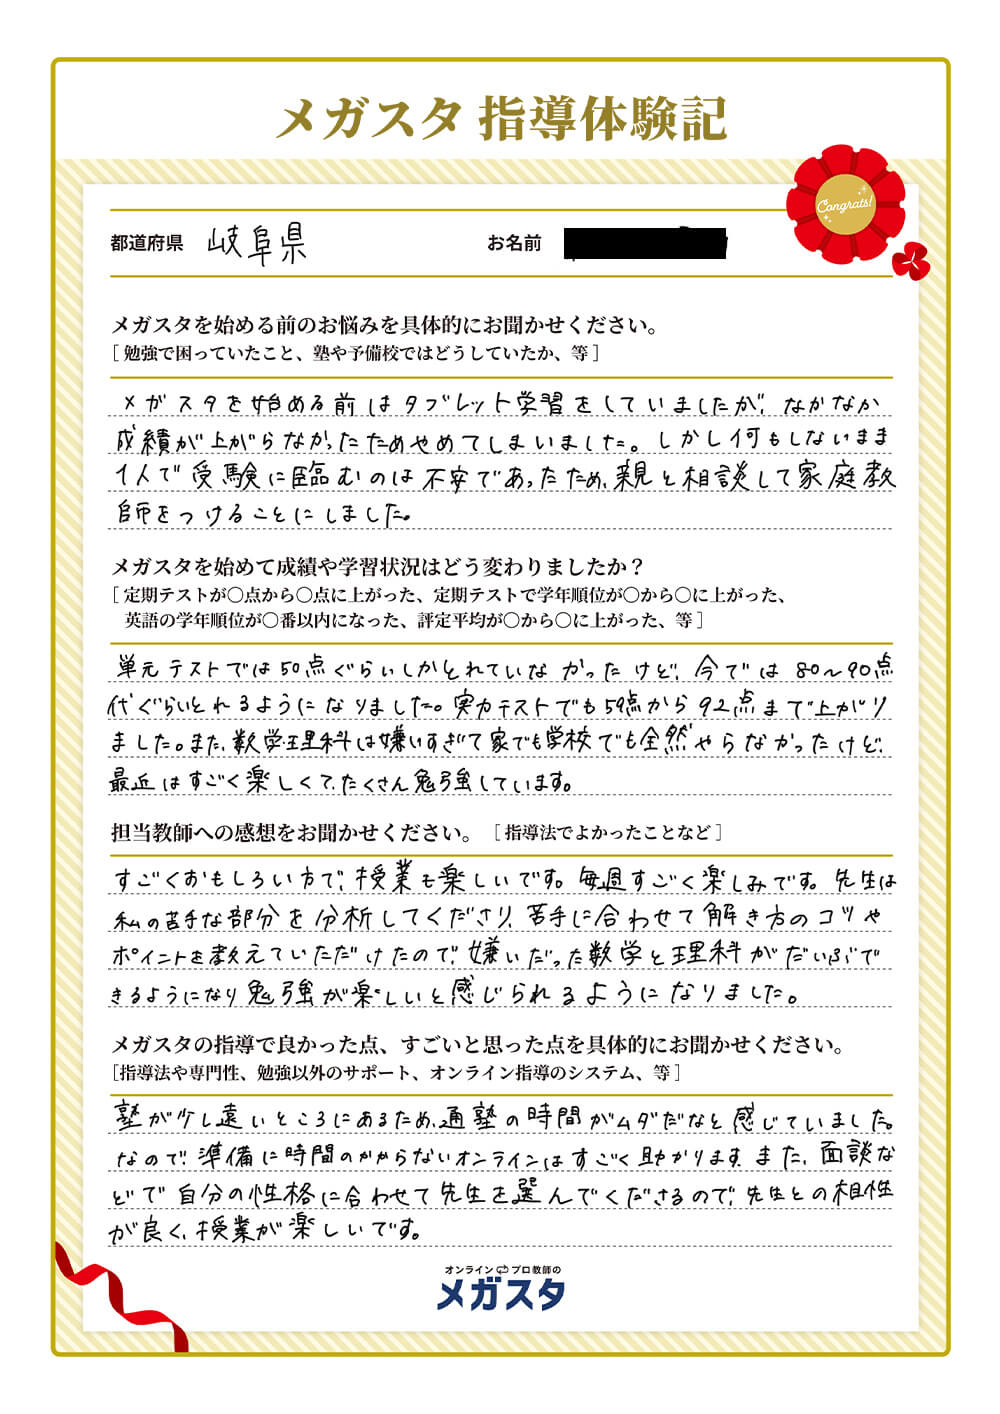 メガスタ 指導体験記
Congrats!
都道府県 岐阜県 お名前
メガスタを始める前のお悩みを具体的にお聞かせください。
[ 勉強で困っていたこと、塾や予備校ではどうしていたか、等 ]
メガスタを始める前はタブレット学習をしていましたが、なかなか
成績が上がらなかったためやめてしまいました。しかし何もしないまま
1人で受験に臨むのは不安であったため、親と相談して家庭教
師をつけることにしました。
メガスタを始めて成績や学習状況はどう変わりましたか？
[ 定期テストが〇点から〇点に上がった、定期テストで学年順位が〇から〇に上がった、
英語の学年順位が〇番以内になった、評定平均が〇から〇に上がった、等 ]
単元テストでは50点ぐらいしかとれていなかったけど、今では80〜90点
代ぐらいとれるようになりました。実力テストでも59点から92点まで上がり
ました。また、数学理科は嫌いすぎて家でも学校でも全然やらなかったけど、
最近はすごく楽しくて、たくさん勉強しています。
担当教師への感想をお聞かせください。 [ 指導法でよかったことなど ]
すごくおもしろい方で、授業も楽しいです。毎週すごく楽しみです。先生は
私の苦手な部分を分析してくださり、苦手に合わせて解き方のコツや
ポイントを教えていただけたので、嫌いだった数学と理科がだいぶで
きるようになり勉強が楽しいと感じられるようになりました。
メガスタの指導で良かった点、すごいと思った点を具体的にお聞かせください。
[指導法や専門性、勉強以外のサポート、オンライン指導のシステム、等 ]
塾が少し遠いところにあるため、通塾の時間がムダだなと感じていました。
なので、準備に時間のかからないオンラインはすごく助かります。また、面談な
どで自分の性格に合わせて先生を選んでくださるので、先生との相性
が良く、授業が楽しいです。
オンライン プロ教師の
メガスタ